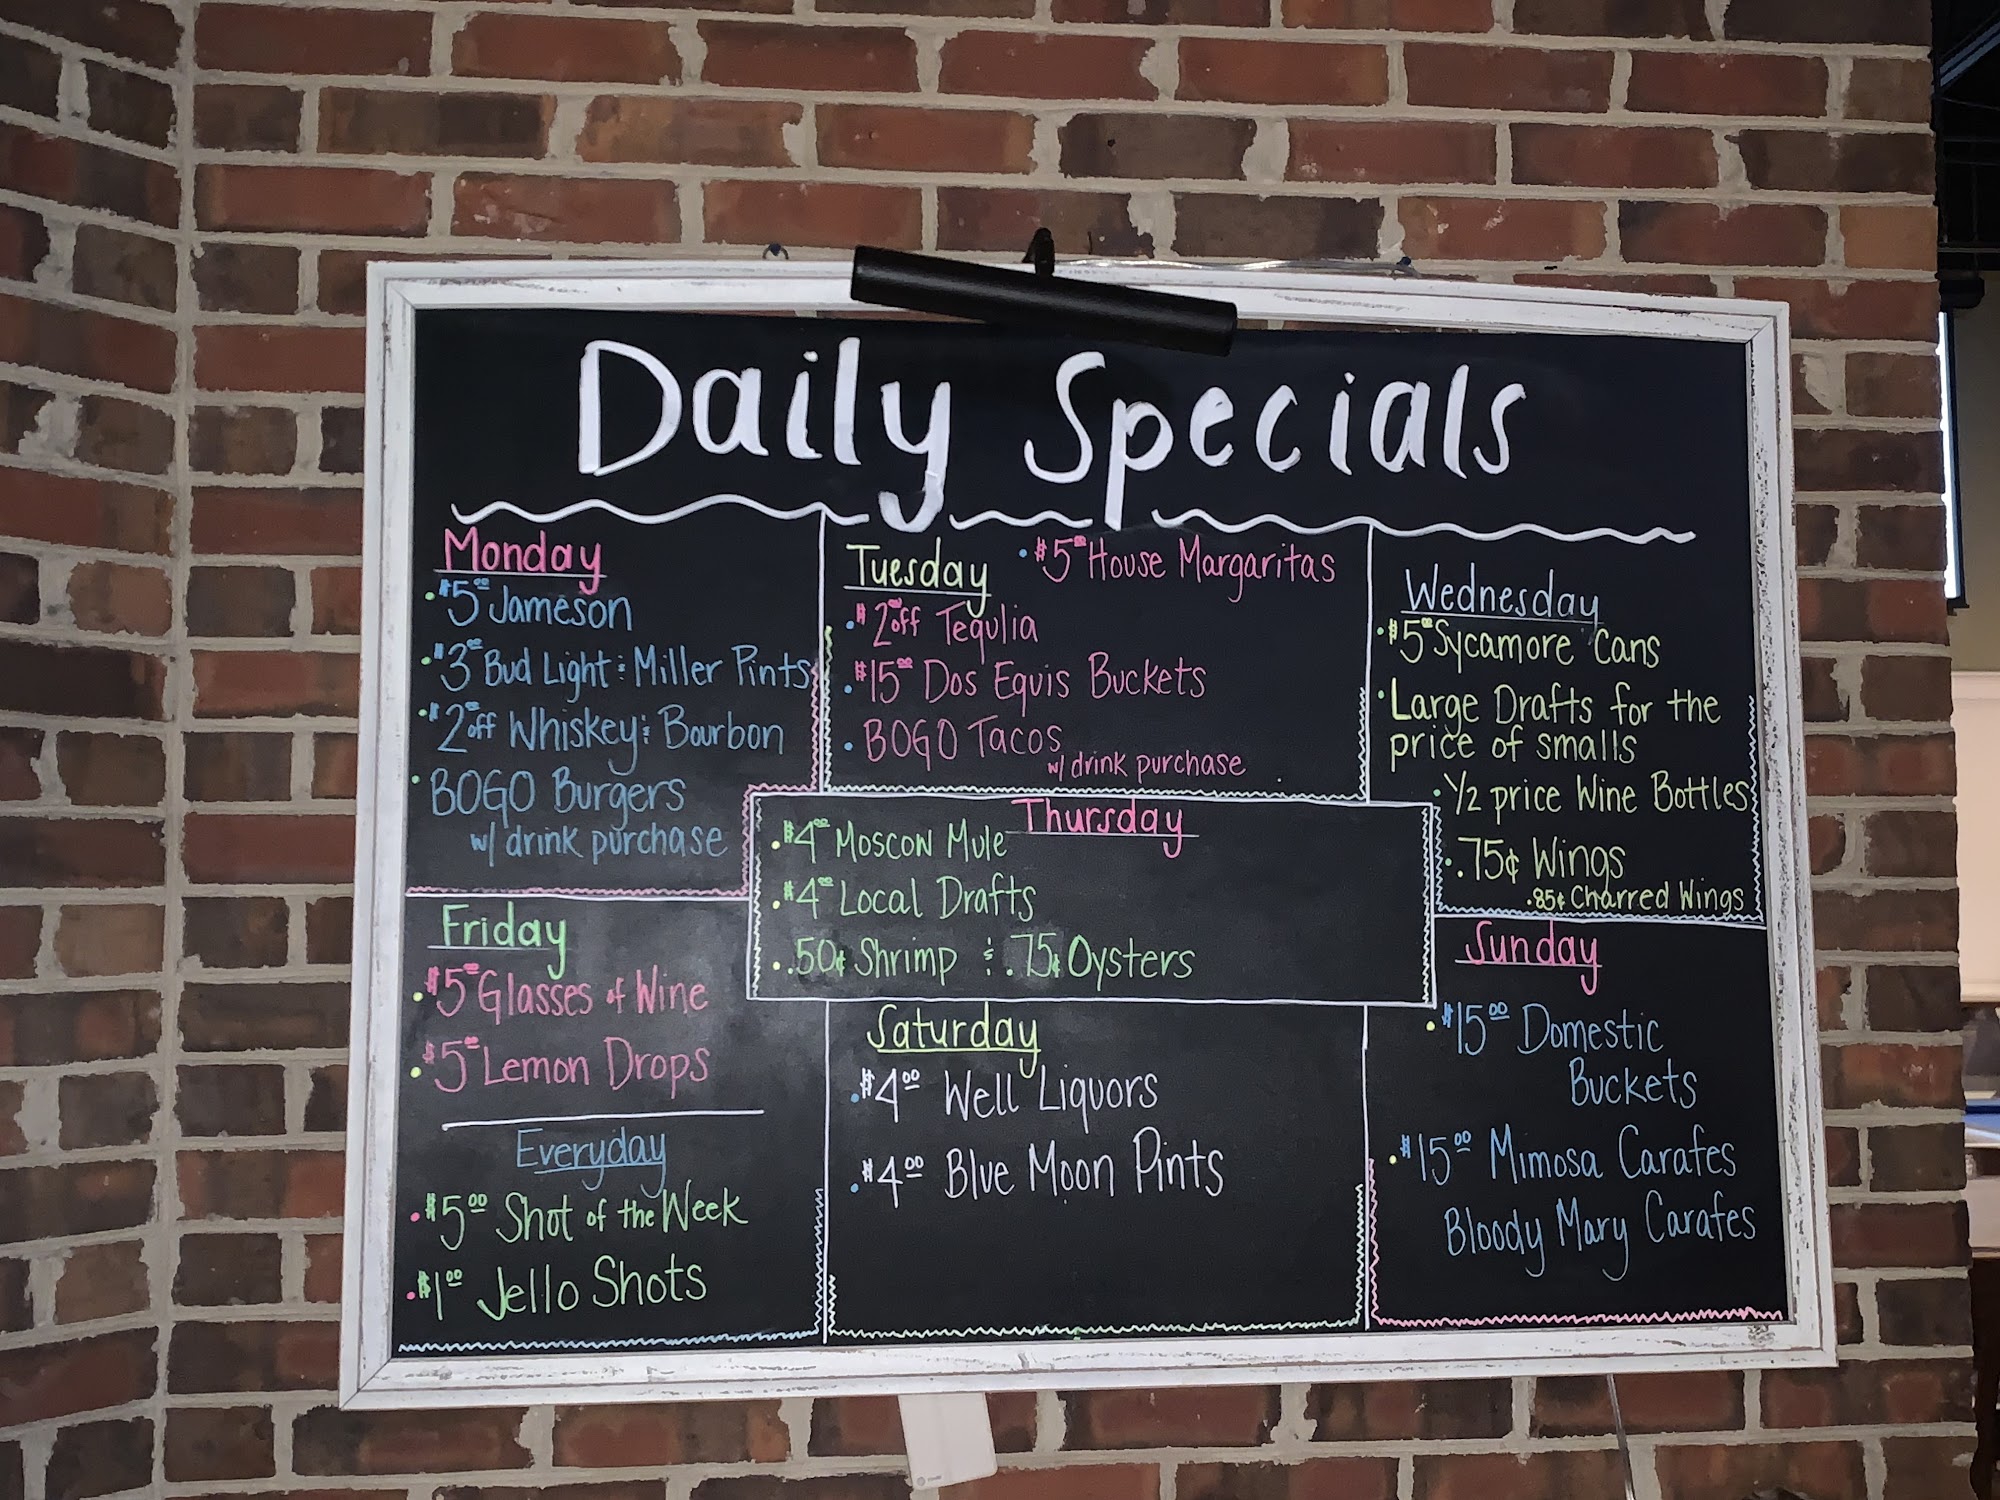 Daily Specials
Monday
$5.00 Jameson
$3.00 Bud Light & Miller Pints
$2.00 off Whiskey & Bourbon
BOGO Burgers
w/ drink purchase
Tuesday
$5.00 House Margaritas
$2.00 off Tequlia
$15.00 Dos Equis Buckets
BOGO Tacos
w/ drink purchase
Wednesday
$5.00 Sycamore Cans
Large Drafts for the
price of smalls
1/2 price Wine Bottles
.75¢ Wings
.85¢ Charred Wings
Thursday
$4.00 Moscow Mule
$4.00 Local Drafts
.50¢ Shrimp & .75¢ Oysters
Friday
$5.00 Glasses of Wine
$5.00 Lemon Drops
Everyday
$5.00 Shot of the Week
$1.00 Jello Shots
Saturday
$4.00 Well Liquors
$4.00 Blue Moon Pints
Sunday
$15.00 Domestic
Buckets
$15.00 Mimosa Carafes
Bloody Mary Carafes